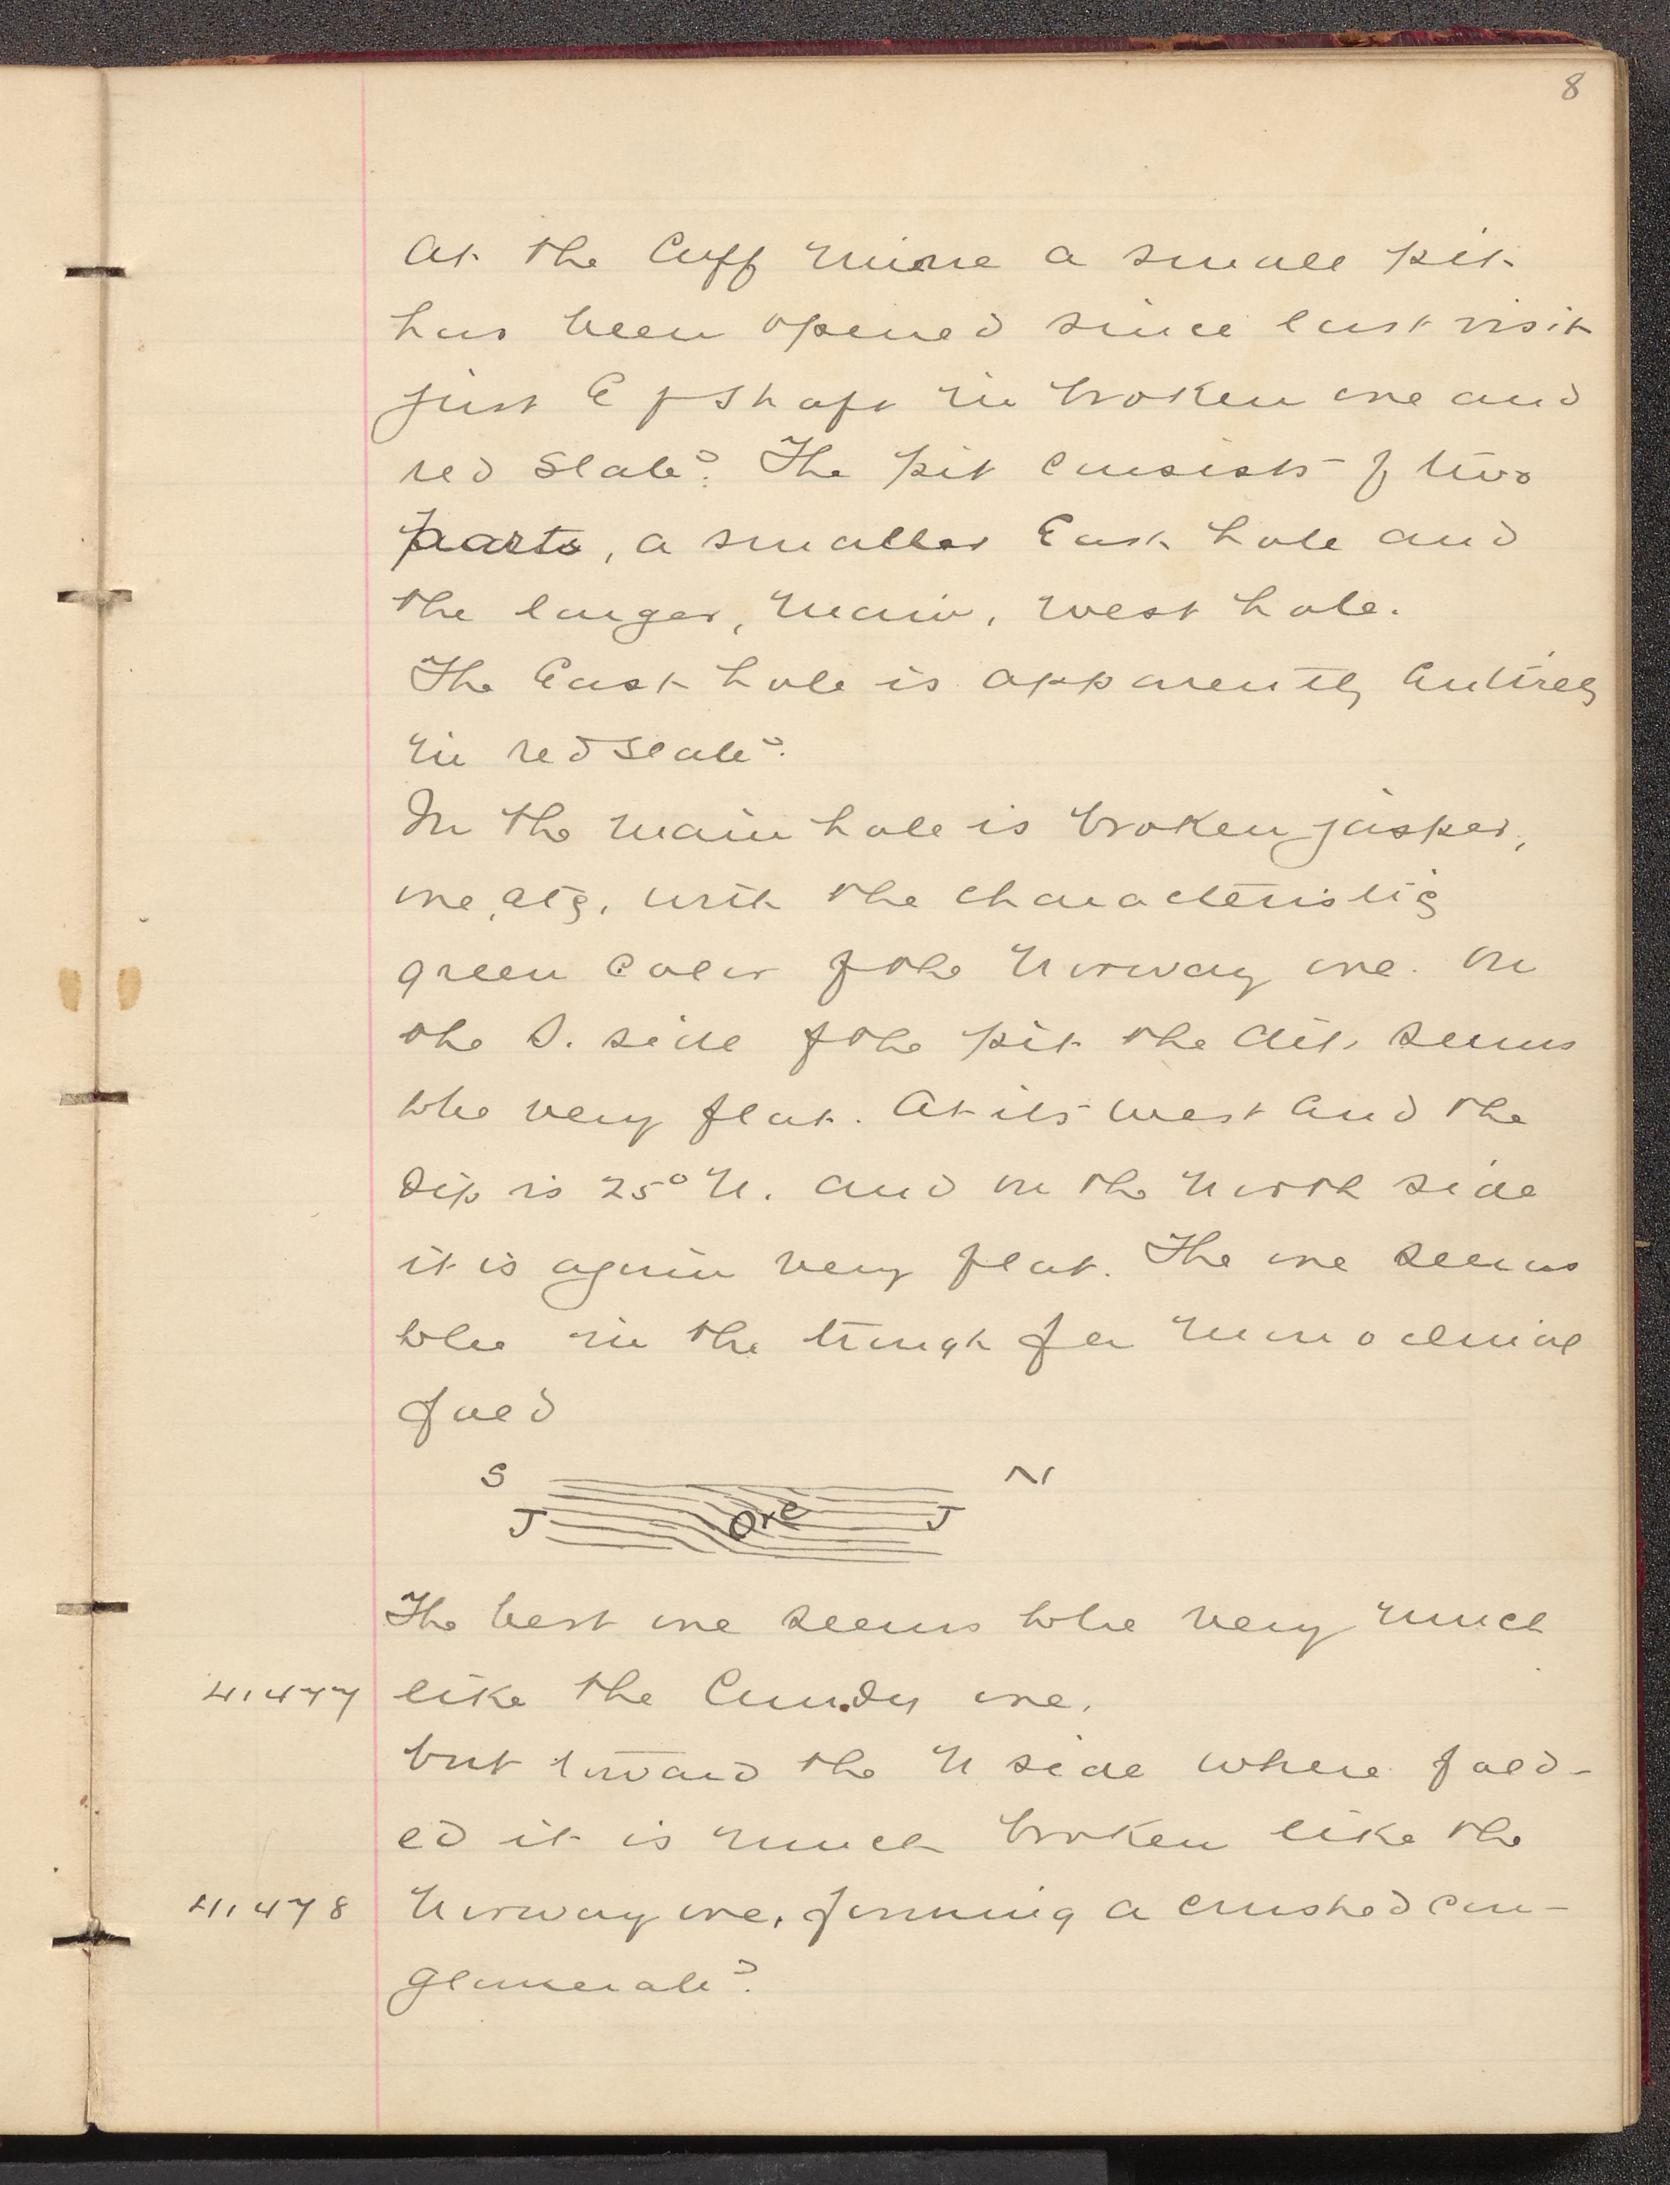 8
At the Cuff mine a small pit
has been opened since last visit
just E of shaft in broken ore and
red slate? The pit consists of two
parts, a smaller East hole and
the larger, main, west hole.
The East hole is apparently entirely
in red slate?
In the main hole is broken jasper,
ore, etc, with the characteristic
green color of the Norway ore. On
the S. side of the pit the dip seems
to be very flat. At its west end the
dip is 25° N. and on the North side
it is again very flat. The ore seems
to be in the trough of a monoclinal
fold
S N
J Ore J
The best ore seems to be very much
41477 like the Cundy ore.
but toward the N side where fold-
ed it is much broken like the
41478 Norway ore, forming a crushed con-
glomerate?